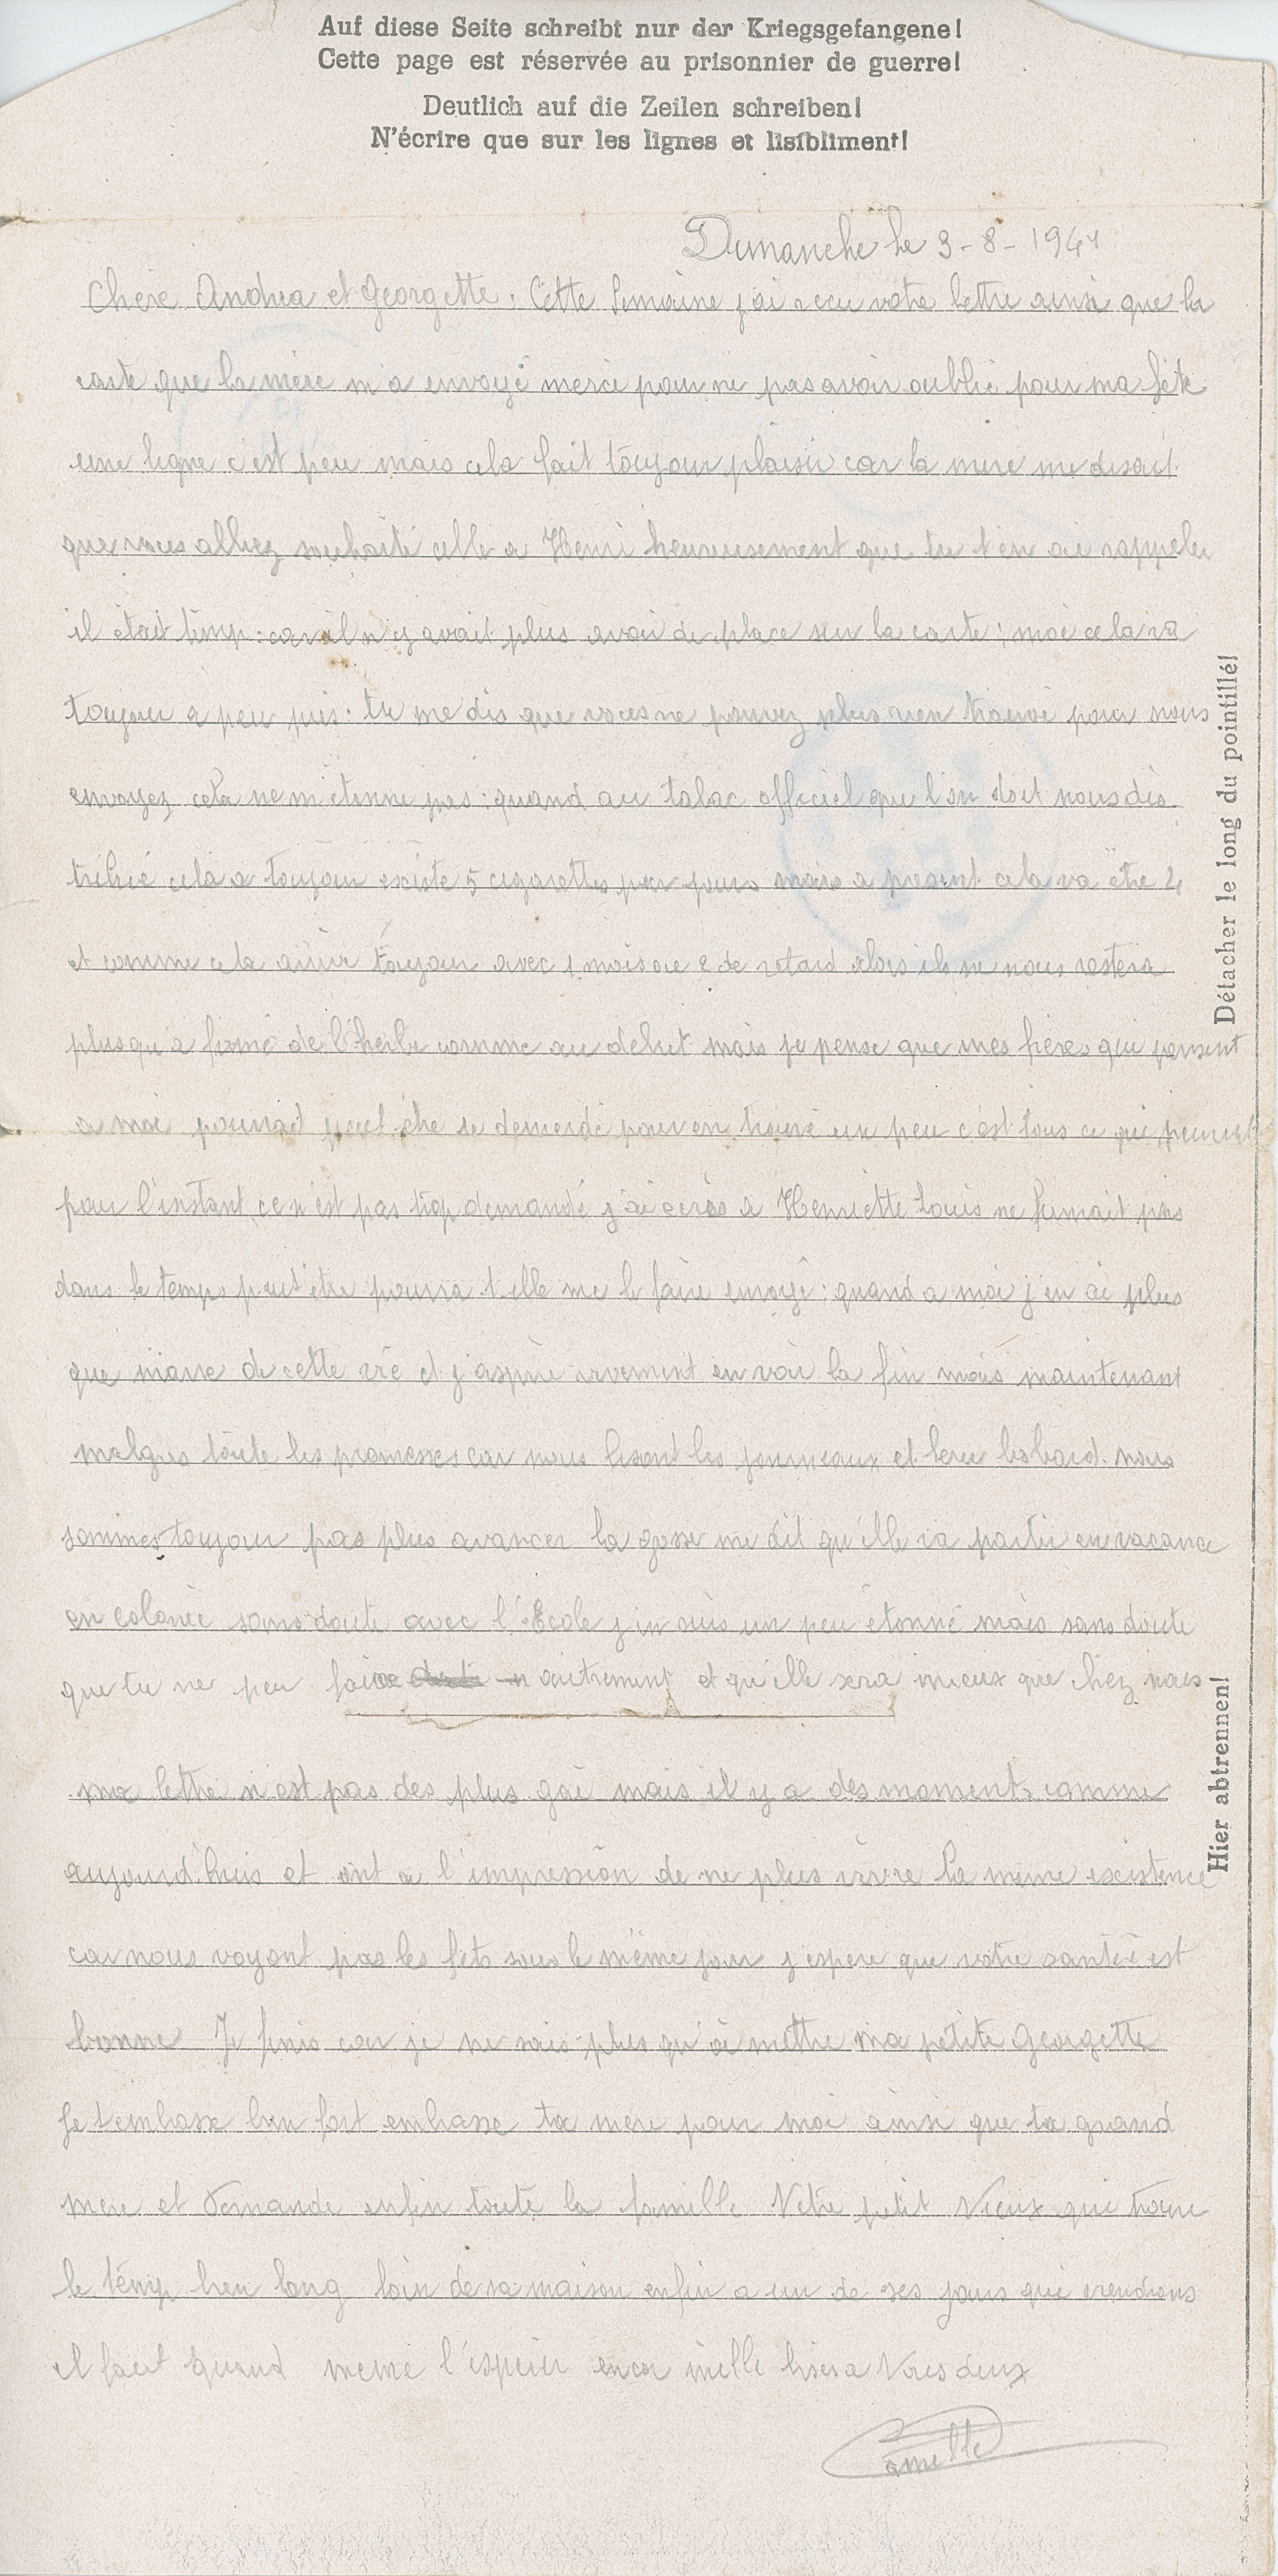 Auf diese Seite schreibt nur der Kriegsgefangene!
Cette page est réservée au prisonnier de guerre!
Deutlich auf die Zeilen schreiben!
N'écrire que sur les lignes et lisibliment!
Dimanche le 3-8-1941
Chere Andrea et Georgette : Cette semaine j'ai recu votre lettre ainsi que la
carte que la mère m'a envoyé merci pour ne pas avoir oublié pour ma fête
une ligne c'est peu mais cela fait toujour plaisir car la mere me disait
que vous alliez souhaité celle a Henri heureusement que tu t'en ai rappeler
il était temp : car il n'y avait plus avoir de place sur la carte ; moi cela va
toujour a peu près. tu me dis que vous ne pouvez plus rien trouvé pour nous
envoyez cela ne m'étonne pas : quand au tabac officiel que l'on doit nous dis-
tribué cela a toujour existé 5 cigarettes par jours mais a présent cela va être 4
et comme cela arrive toujour avec 1 mois ou 2 de retard alors ils ne nous restera
plus qu'a fumé de l'herbe comme au debut mais je pense que mes frères qui pensent
a moi pourrait peut être se demerdé pour en trouvé un peu c'est tous ce qui
pour l'instant ce n'est pas trop demandé j'ai ecris a Henriette Louis ne fumait pas
dans le temps peut être pourra t'elle me le faire envoyé ; quand a moi j'en ai plus
que marre de cette vie et j'aspire vivement en voir la fin mais maintenant
malgres toute les promesses car nous lisont les journeaux et leur bobard. nous
sommes toujour pas plus avancer la gosse me dit qu'elle va partir en vacance
en colonie sans doute avec l'Ecole j'en suis un peu étonné mais sans doute
que tu ne peu faire autrement et qu'elle sera mieux que chez nous
ma lettre n'est pas des plus gai mais il y a des moments comme
aujourd'huis et ont a l'impression de ne plus vivre la meme existence
car nous voyont pas les fets sous le même jour j'espere que votre santée est
bonne Je finis car je ne sais plus qu'oi mettre ma petite Georgette
Je t'embasse bien fort embasse ta mere pour moi ainsi que ta grand
mere et Fernande enfin toute la famille Votre petit Vieux qui trouve
le temp bien long loin de sa maison enfin a un de ses jours qui viendrons
il faut quand meme l'esperer encor mille bisers a Vous deux
Camille
Détacher le long du pointillé!
Hier abtrennen!